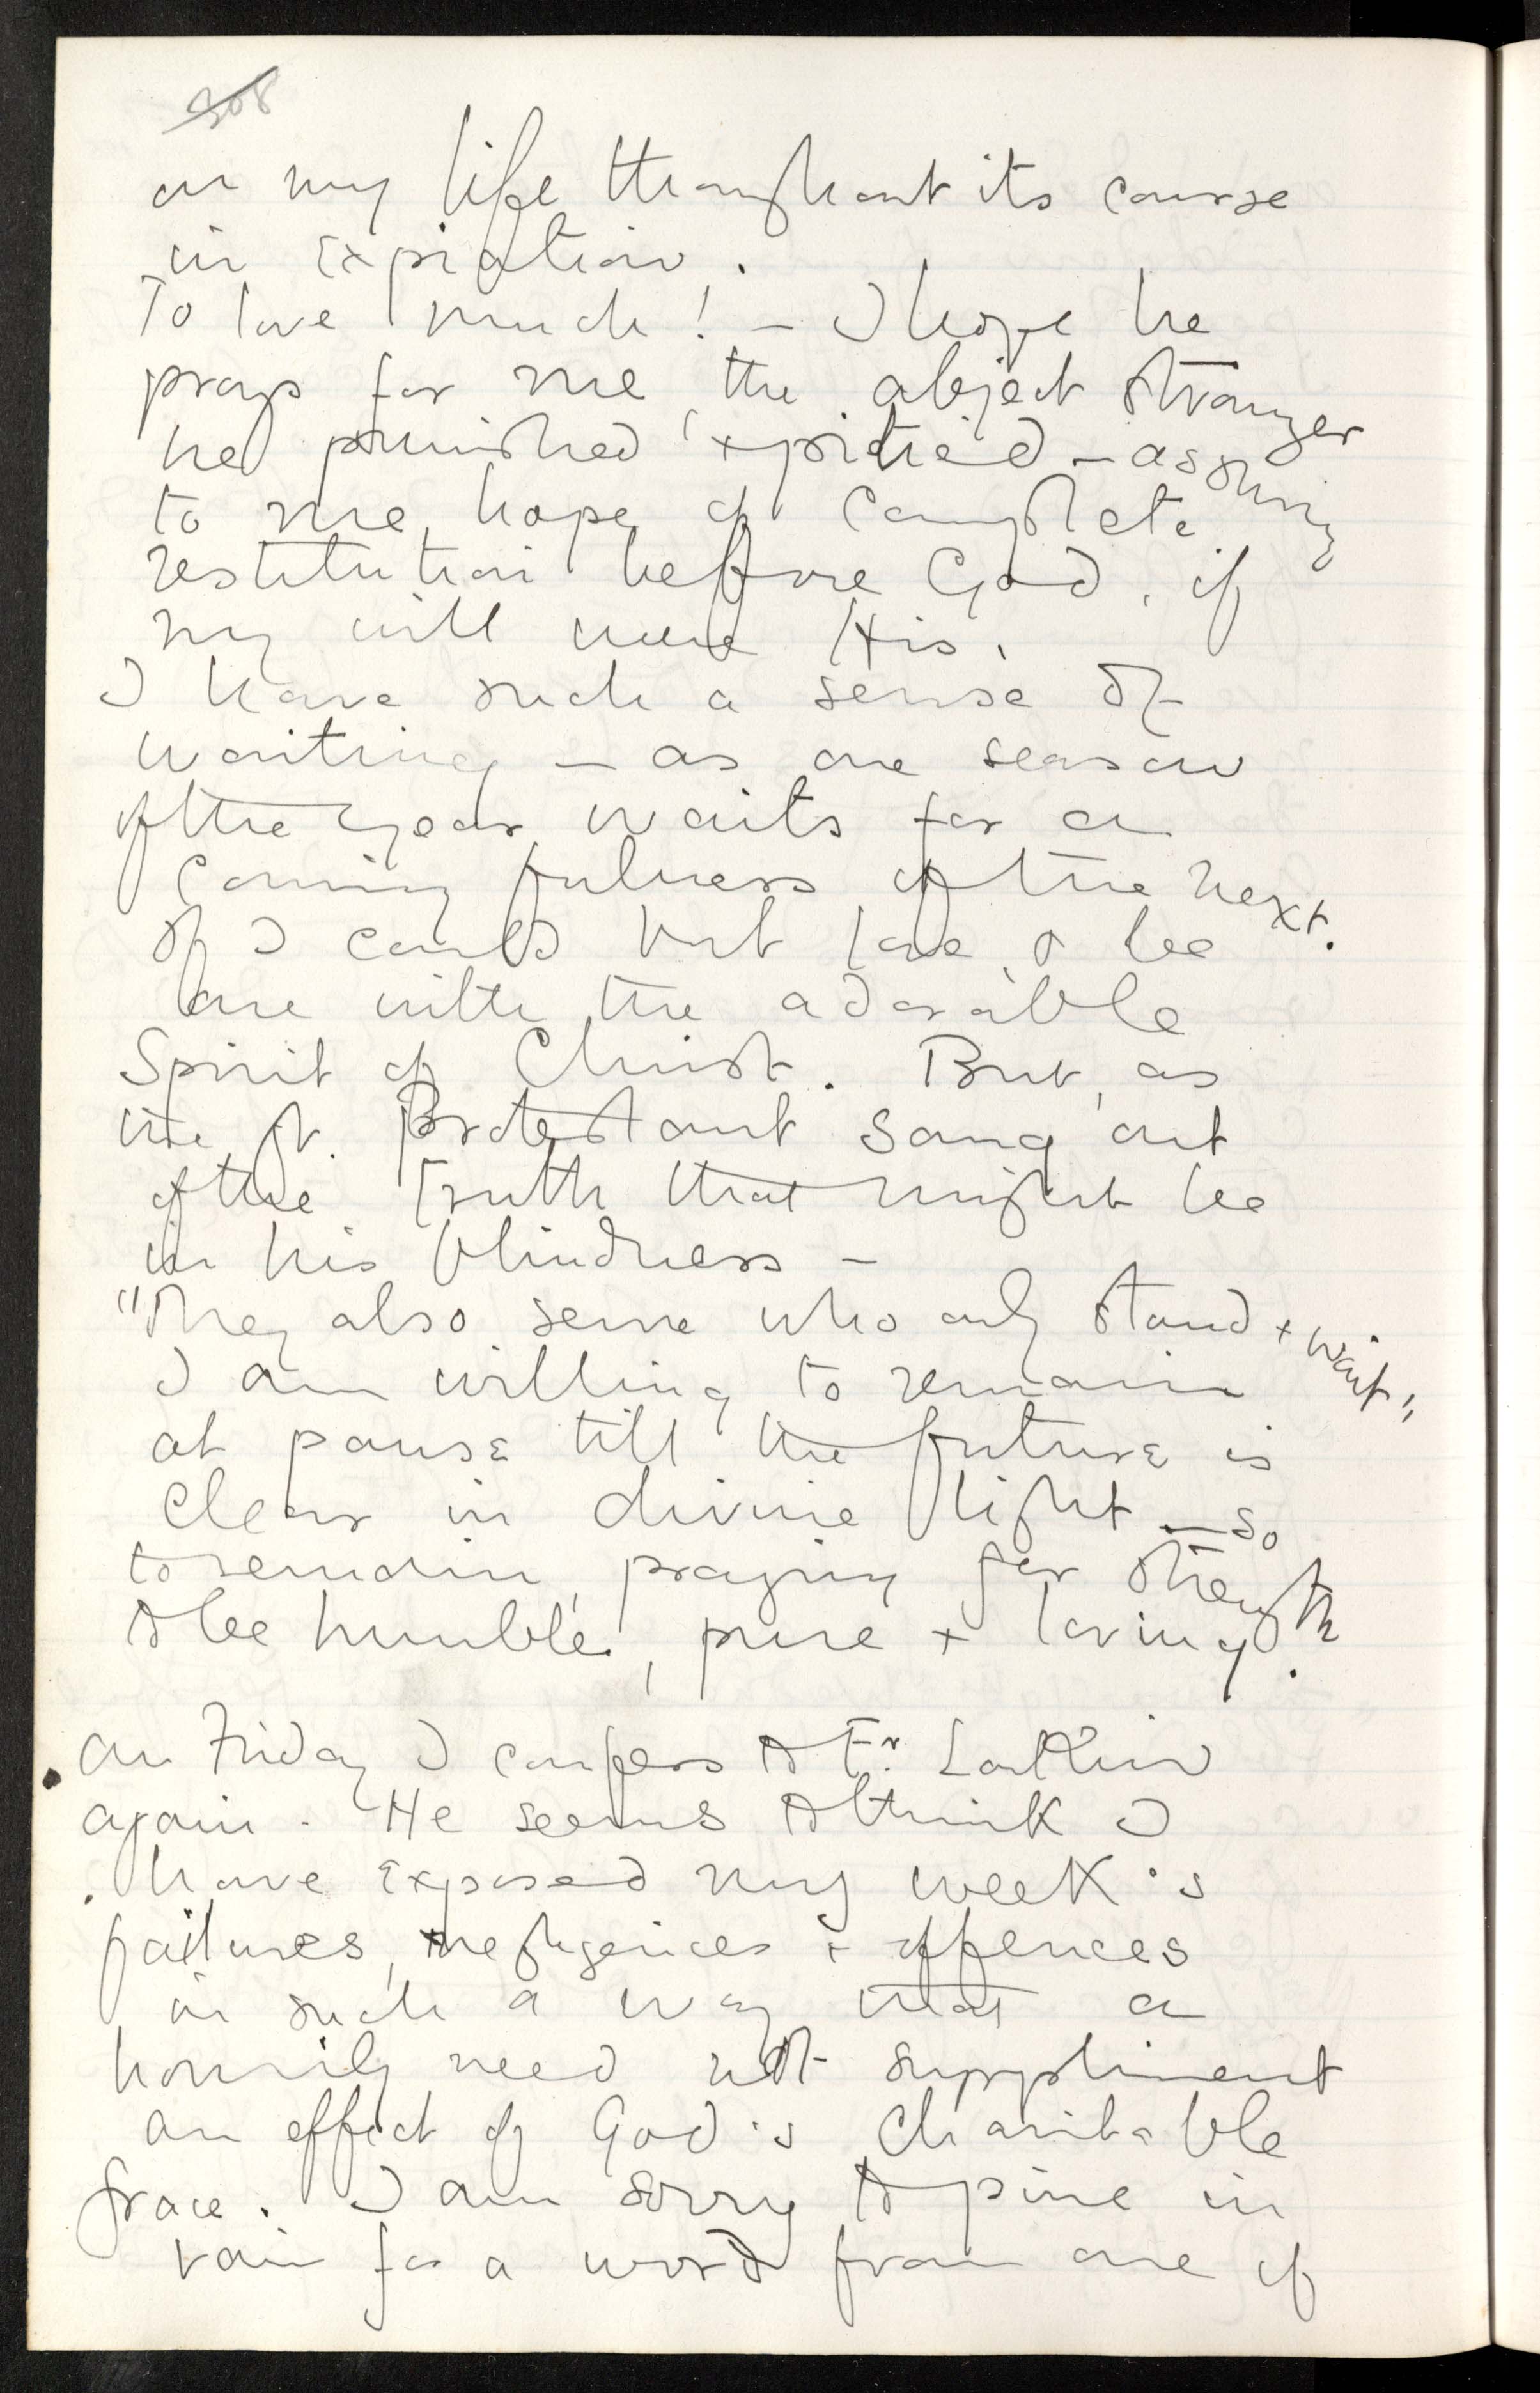 308
on my life throughout its course
in expiation.
To love much! – I hope he
prays for me, the abject stranger
he punished & pitied – assuring
to me hope of complete
restitution before God, if
my will were His.
I have such a sense of
waiting – as one season
of the year waits for a
coming fulness of the next.
If I could but love & be
one with the adorable
Spirit of Christ. But, as
the gt. Protestant sang out
of the Truth that might be
in his blindness –
"They also serve who only stand & wait"
I am willing to remain
at pause till the future is
clear in divine light – so
to remain, praying for strength
to be humble, pure & loving.
On Friday I confess to Fr. Larkin
again. He seems to think I
have exposed my week's
failures, negligences & offences
in such a way that a
homily need not suppliment
an effect of God's charitable
grace. I am sorry to pine in
vain for a word from one if